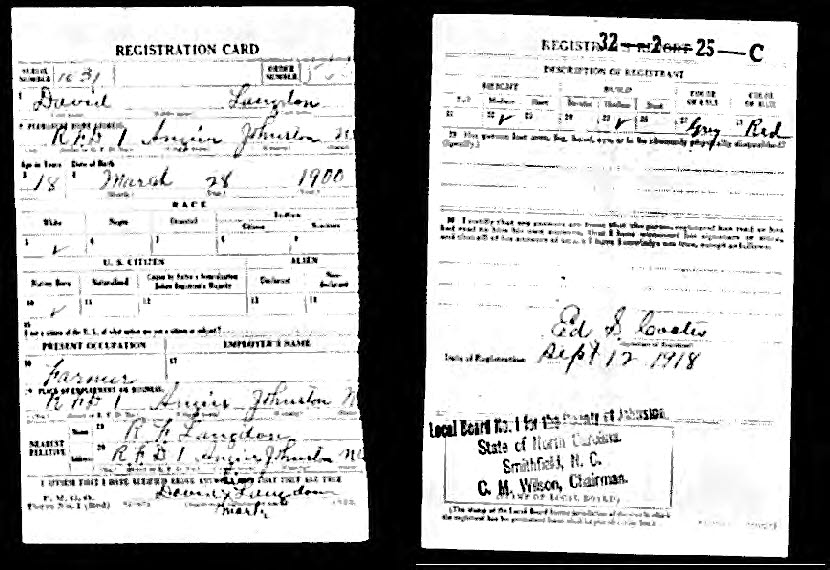 REGISTRATION CARD
SERIAL NUMBER 1031
ORDER NUMBER
1 David Langdon
2 PERMANENT HOME ADDRESS:
R F D 1 Angier Johnston N C
Age in Years Date of Birth
3 18 4 March 28 1900
RACE
White Negro Oriental Indian
Citizen Noncitizen
5 ✓ 6 7 8 9
U. S. CITIZEN ALIEN
Native Born Naturalized Citizen by Father's Naturalization Before Registrant's Majority Declarant Non-declarant
10 ✓ 11 12 13 14
15
If not a citizen of the U. S., of what nation are you a citizen or subject?
PRESENT OCCUPATION EMPLOYER'S NAME
16 Farmer 17
18 PLACE OF EMPLOYMENT OR BUSINESS:
R F D 1 Angier Johnston N
NEAREST RELATIVE
Name 19 R. F. Langdon
Address 20 R F D 1 Angier Johnston N C
I AFFIRM THAT I HAVE VERIFIED ABOVE ANSWERS AND THAT THEY ARE TRUE
P. M. G. O.
Form No. 1 (Red)
Langdon
mark
REGISTRAR'S REPORT
32-2-25-C
DESCRIPTION OF REGISTRANT
HEIGHT BUILD COLOR OF EYES COLOR OF HAIR
Tall Medium Short Slender Medium Stout
21 22 ✓ 23 24 25 ✓ 26 27 Gray 28 Red
29 Has person lost arm, leg, hand, eye, or is he obviously physically disqualified?
(Specify.)
30 I certify that my answers are true; that the person registered has read or has
had read to him his own answers; that I have witnessed his signature or mark,
and that all of his answers of which I have knowledge are true, except as follows:
Ed S. Coates
Date of Registration Sept 12 1918
Local Board No. 1 for the County of Johnston,
State of North Carolina.
Smithfield, N. C.
C. M. Wilson, Chairman.
(STAMP OF LOCAL BOARD)
(The stamp of the Local Board having jurisdiction of the area in which
the registrant has his permanent home shall be placed in this box.)